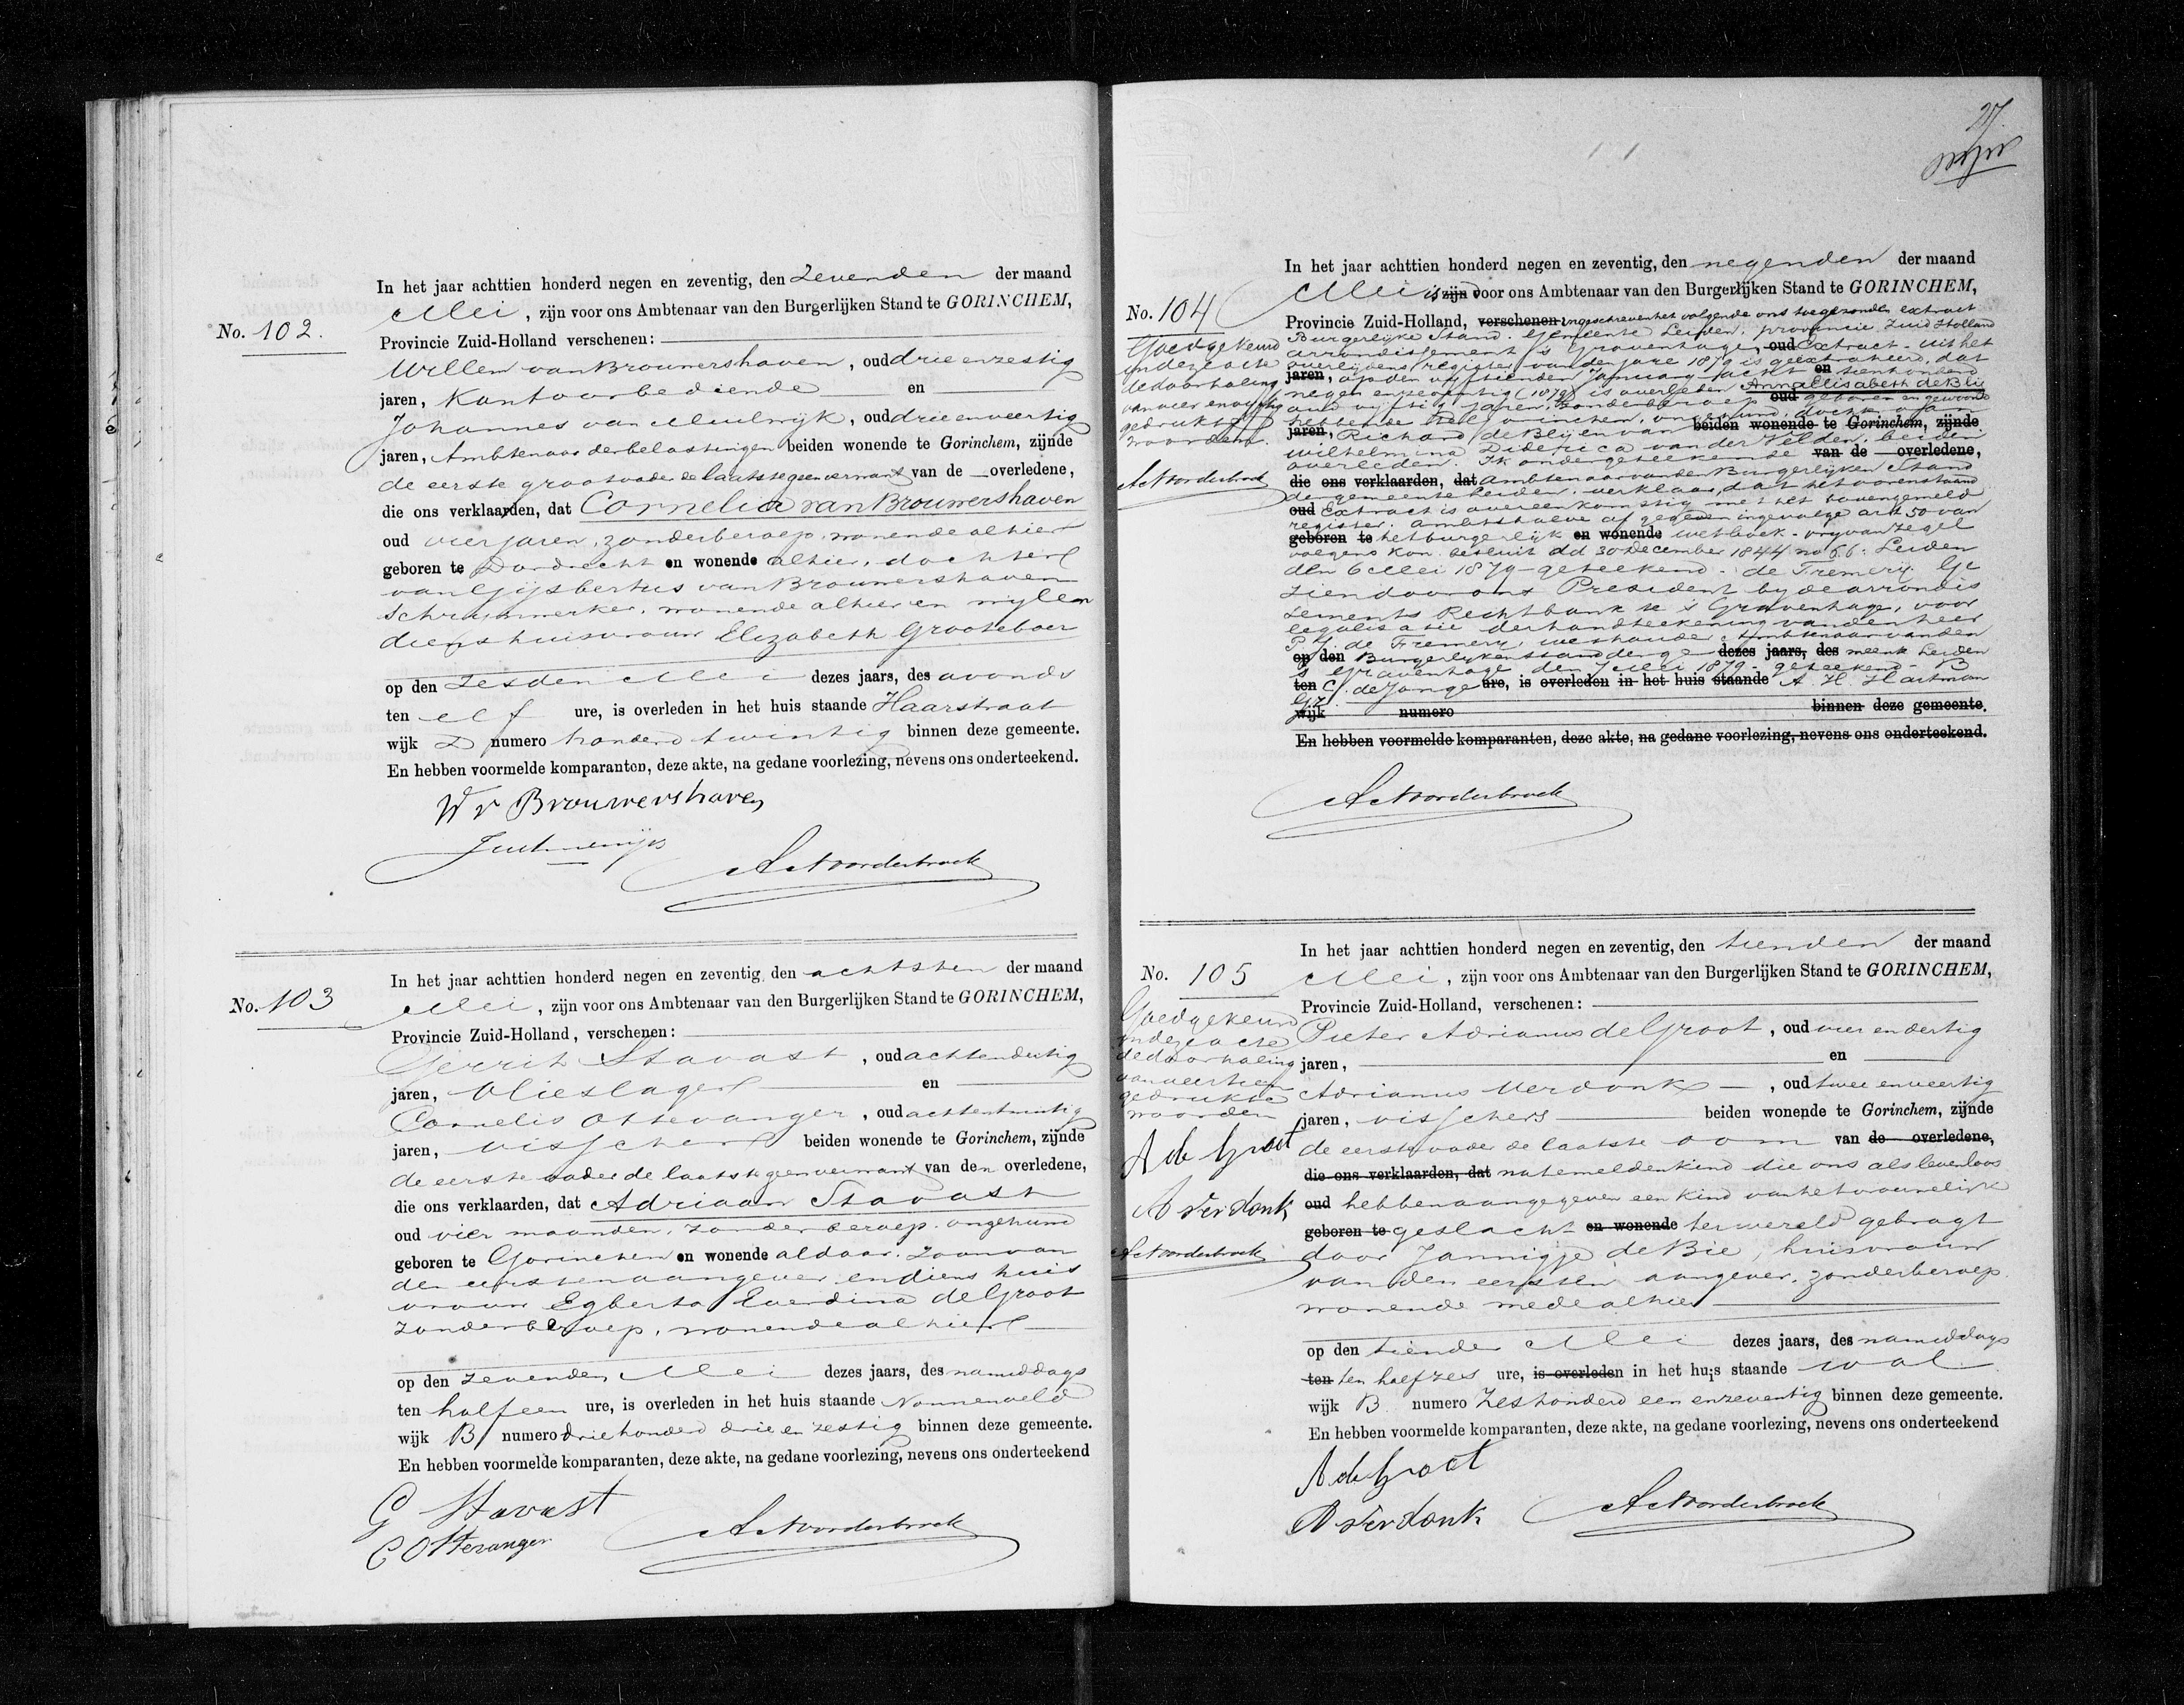 In het jaar achttien honderd negen en zeventig, den Zevenden der maand
Mei, zijn voor ons Ambtenaar van den Burgerlijken Stand te GORINCHEM,
No. 102.
Provincie Zuid-Holland verschenen:
Willem van Brouwershaven, oud drie en zestig
jaren, Kantoorbediende en
Johannes van Muilwijk, oud drie en veertig
jaren, Ambtenaar der belastingen beiden wonende te Gorinchem, zijnde
de eerste grootvader de laatste geen verwant van de overledene,
die ons verklaarden, dat Cornelia van Brouwershaven
oud vier jaren, zonder beroep, wonende alhier
geboren te Dordrecht en wonende alhier, dochter
van Gijsbertus van Brouwershaven
Schrijnwerker, wonende alhier en wylen
diens huisvrouw Elizabeth Grooteboer
op den Zesden Mei dezes jaars, des avonds
ten elf ure, is overleden in het huis staande Haarstraat
wijk D numero honderd twintig binnen deze gemeente.
En hebben voormelde komparanten, deze akte, na gedane voorlezing, nevens ons onderteekend.
W v Brouwershaven
ANoorderbroek
In het jaar achttien honderd negen en zeventig, den achtsten der maand
No. 103
Mei, zijn voor ons Ambtenaar van den Burgerlijken Stand te GORINCHEM,
Provincie Zuid-Holland, verschenen:
Gerrit Stavast, oud acht en dertig
jaren, Olieslager en
Cornelis Ottevanger, oud acht en twintig
jaren, visscher beiden wonende te Gorinchem, zijnde
de eerste vader de laatste geen verwant van den overledene,
die ons verklaarden, dat Adriaan Stavast
oud vier maanden, zonder beroep, ongehuwd
geboren te Gorinchem en wonende aldaar. Zoon van
den eersten aangever en diens huis
vrouw Egberta Everdina de Groot
zonder beroep, wonende alhier
op den zevenden Mei dezes jaars, des namiddags
ten half een ure, is overleden in het huis staande Nonnenveld
wijk B numero driehonderd drie en zestig binnen deze gemeente.
En hebben voormelde komparanten, deze akte, na gedane voorlezing, nevens ons onderteekend
G Stavast
C Ottevanger
ANoorderbroek
27
In het jaar achttien honderd negen en zeventig, den negenden der maand
Mei is zijn voor ons Ambtenaar van den Burgerlijken Stand te GORINCHEM,
No. 104
Provincie Zuid-Holland, verschenen ingeschreven het volgende ons toegezonden extract
Burgerlijke Stand. Gemeente Leiden, provincie Zuid Holland
Goedgekeurd
in deze acte
de doorhaling
van vier en vijftig
gedrukte
woorden.
ANoorderbroek
arrondissement 's Gravenhage, oud Extract uit het
overlijdens register van den jare 1879 is geextraheerd, dat
jaren, op den vijftienden January acht en tienhonderd
negen en zeventig (1879) is overleden Anna Elisabeth de Bli
oud vijftig jaren, zonder beroep oud geboren en gewoond
hebbende te Gorinchem, ongehuwd, dochter van
jaren, Richard de Blij en van beiden wonende te Gorinchem, zijnde
Wilhelmina Diderica van der Velden, beiden
overleden. Ik ondergeteekende van de overledene,
die ons verklaarden, dat Ambtenaar van den Burgerlijken Stand
der gemeente Leiden, verklaar, dat het vorenstaand
oud Extract is overeenkomstig met het bovengemeld
register. Ambtshalve afgegeven ingevolge art 50 van
geboren te het burgerlijk en wonende wetboek - vrij van zegel
volgens Kon. besluit dd 30 December 1844 no 66. Leiden
den 6 Mei 1879 - geteekend - de Fremery. Ge
zien door ons President by de arrondis
sements Rechtbank te 's Gravenhage, voor
legalisatie der handteekening van den heer
de Fremery wethouder Ambtenaar van den
op den Burgerlyken stand der ge dezes jaars, des meente Leiden
's Gravenhage den 7 Mei 1879 - geteekend - B
ten C. de Jonge ure, is overleden in het huis staande A. H. Hartman
Gz.
wijk numero binnen deze gemeente.
En hebben voormelde komparanten, deze akte, na gedane voorlezing, nevens ons onderteekend.
ANoorderbroek
In het jaar achttien honderd negen en zeventig, den tienden der maand
No. 105
Mei, zijn voor ons Ambtenaar van den Burgerlijken Stand te GORINCHEM,
Provincie Zuid-Holland, verschenen:
Goedgekeurd
in deze acte
de doorhaling
van veertien
gedrukte
woorden
A de Groot
A Verdonk
ANoorderbroek
Pieter Adrianus de Groot, oud vier en dertig
jaren, en
Adrianus Verdonk, oud twee en veertig
jaren, visschers beiden wonende te Gorinchem, zijnde
de eerste vader de laatste oom van de overledene,
die ons verklaarden, dat natemelden kind die ons als levenloos
oud hebben aangegeven een kind van het vrouwelijk
geboren te geslacht en wonende ter wereld gebragt
door Jannigje de Bie, huisvrouw
van den eersten aangever, zonder beroep
wonende mede alhier
op den tienden Mei dezes jaars, des namiddags
ten ten half zes ure, is overleden in het huis staande Wal
wijk B. numero Zeshonderd een en zeventig binnen deze gemeente.
En hebben voormelde komparanten, deze akte, na gedane voorlezing, nevens ons onderteekend
A de Groot
A Verdonk
ANoorderbroek